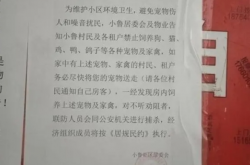 为维护小区环境卫生，避免宠物伤
人和噪音扰民，小鲁居委会及物业告
知小鲁村民及各租户禁止饲养狗、猫、
鸡、鸭、鸽子等各种宠物及家禽。如
家中有上述宠物、家禽的村民、租户
务必尽快将您的宠物送走（请各位村
民通知自己房客）。一经发现房内饲
养上述宠物及家禽，对不听劝阻者，
消防人员会同公安机关进行捕杀，经
济组织成员将按《居规民约》执行。